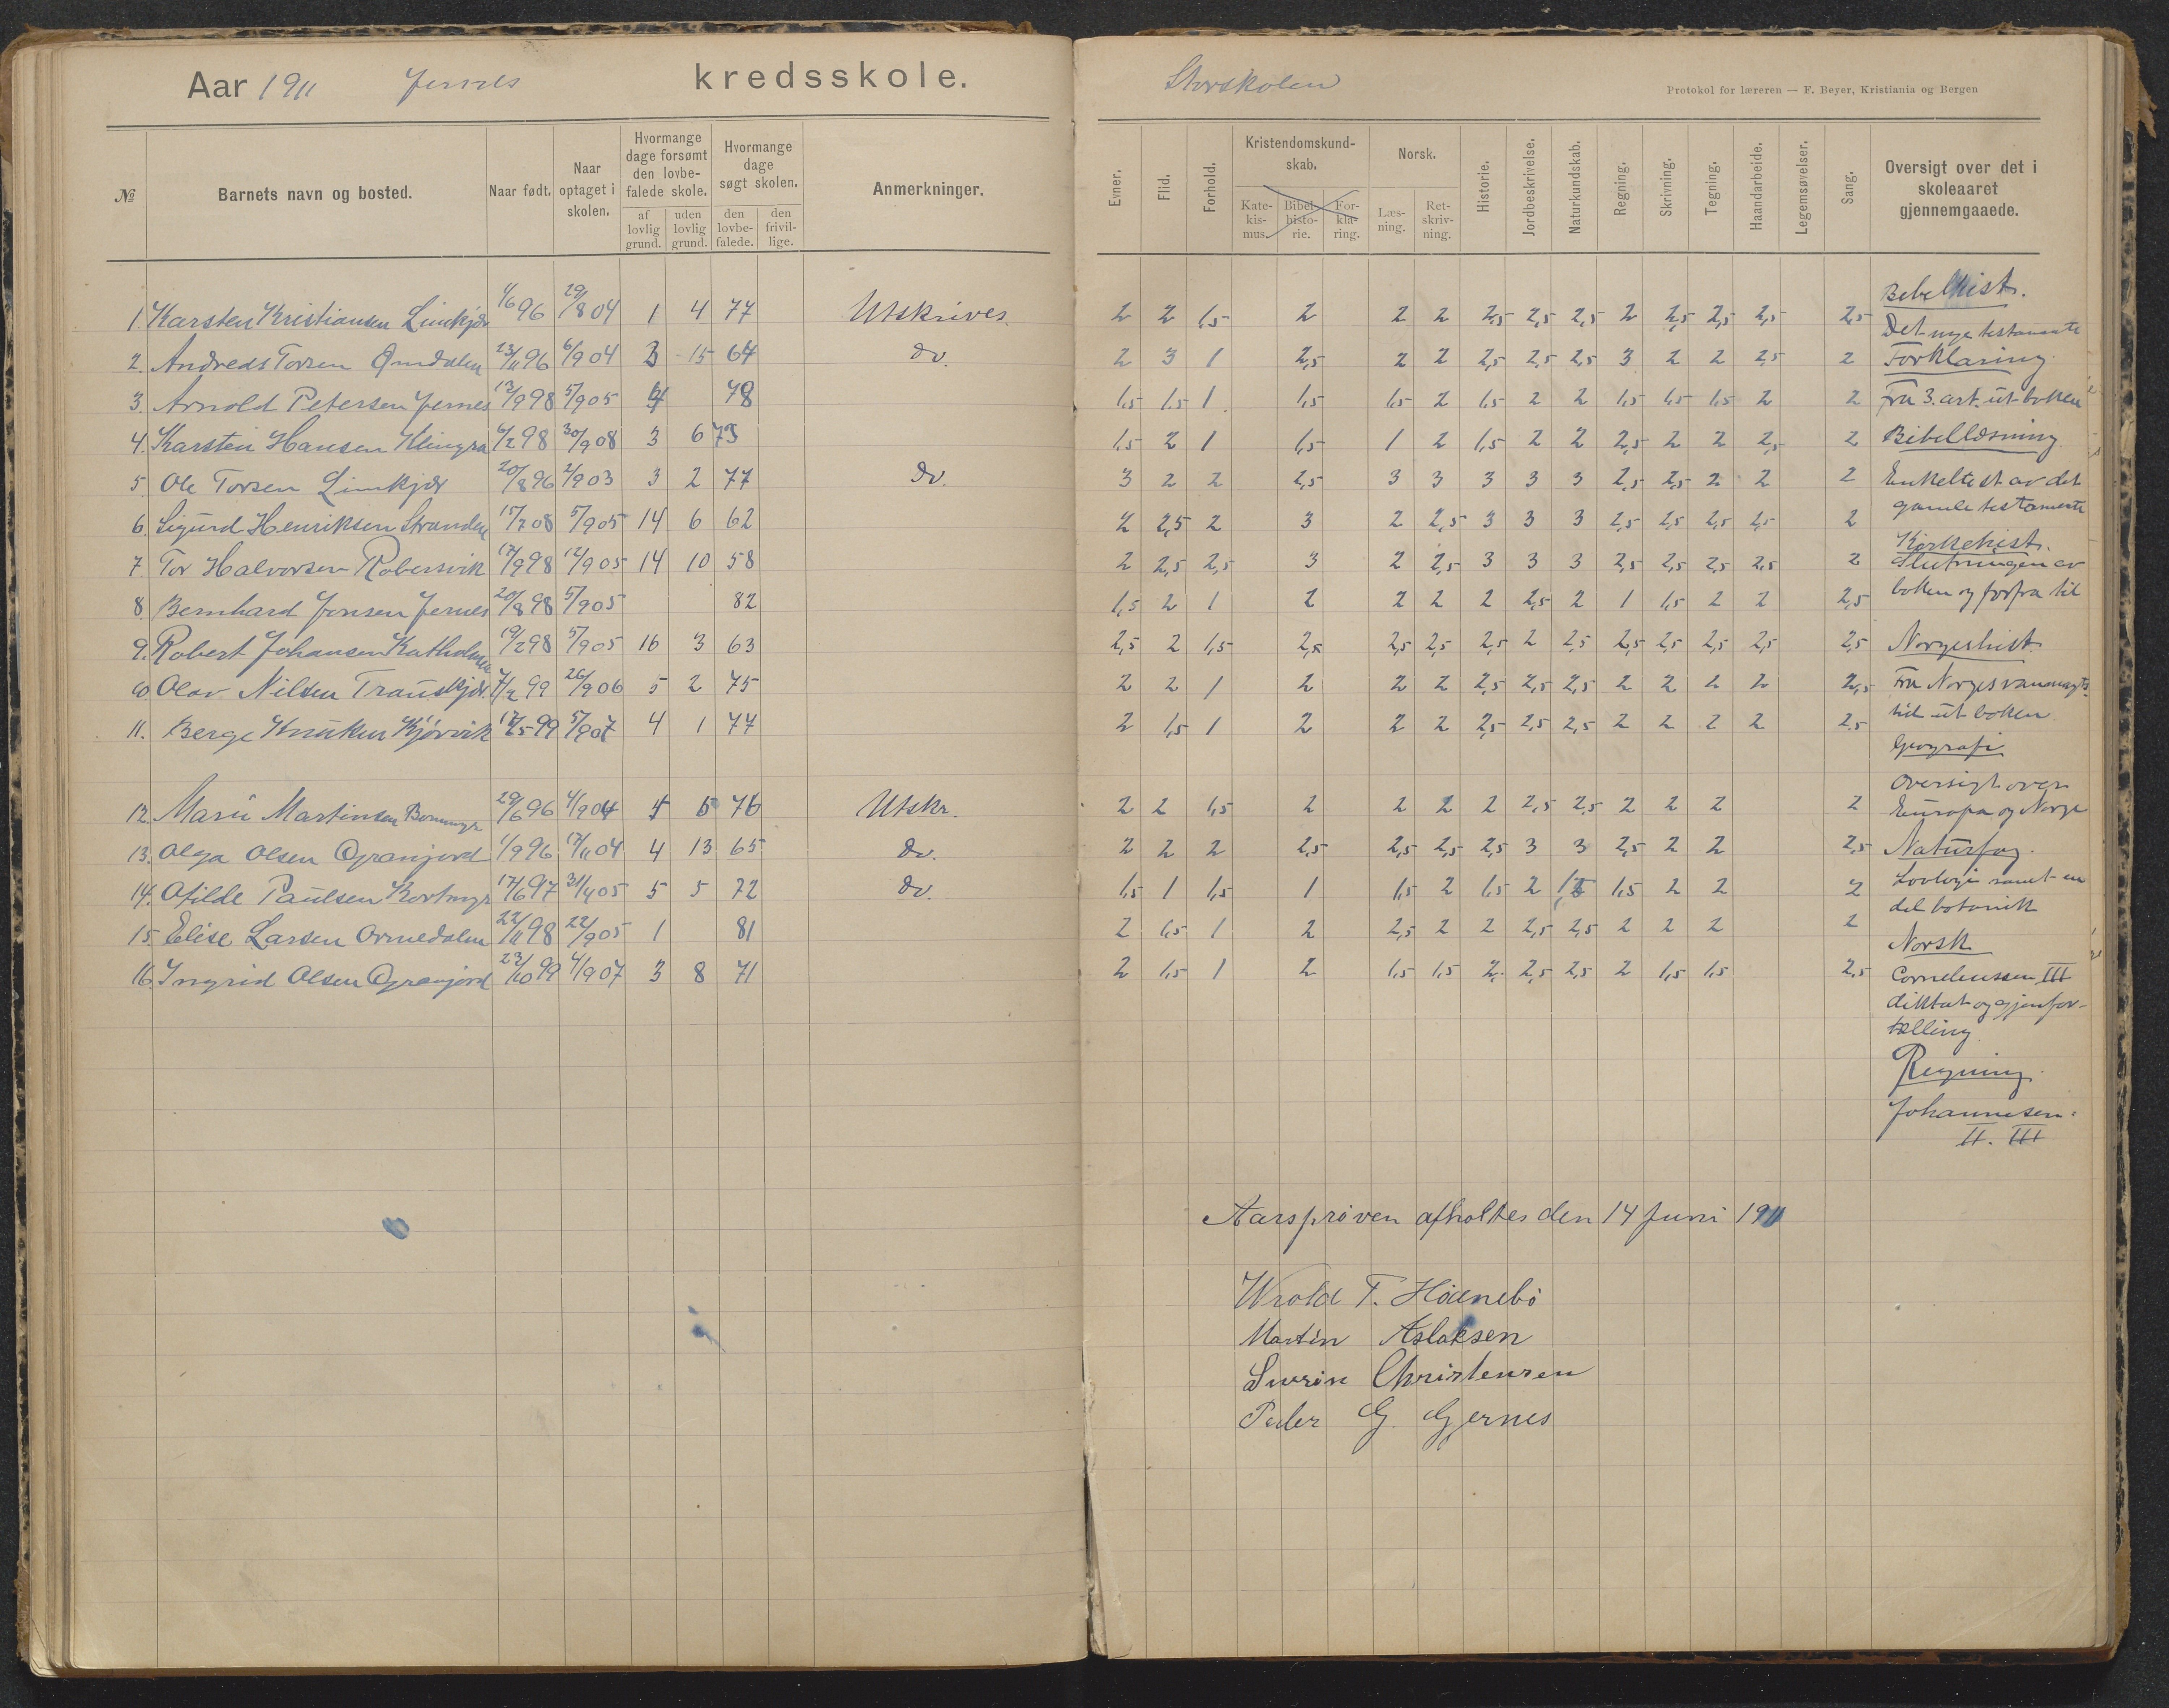 Aar 1911 Jernes kredsskole.
№ Barnets navn og bosted. Naar født. Naar optaget i skolen. Hvormange dage forsømt den lovbefalede skole. af lovlig grund. uden lovlig grund. Hvormange dage søgt skolen. den lovbefalede. den frivillige. Anmerkninger.
1 Karsten Kristiansen Limkjær 1/6 96 29/8 04 1 4 77 Utskrives.
2. Andreas Torsen Omdalen 23/11 96 6/9 04 3 15 64 do.
3. Arnold Petersen Jernes 12/9 98 5/9 05 4 78
4. Karsten Hansen Klingra 6/2 98 30/9 08 3 6 73
5. Ole Torsen Limkjær 20/8 96 2/9 03 3 2 77 do.
6. Sigurd Henriksen Stranden 15/7 08 5/9 05 14 6 62
7. Tor Halvorsen Robersvik 17/9 98 12/9 05 14 10 58
8 Bernhard Jensen Jernes 20/8 98 5/9 05 82
9. Robert Johansen Katholmen 19/2 98 5/9 05 16 3 63
10 Olav Nilsen Transkjær. 7/2 99 26/9 06 5 2 75
11. Berge Knutsen Kjörvik 17/5 99 5/9 07 4 1 77
12. Marie Martinsen 29/6 96 4/9 04 4 5 76 Utskr.
13. Olga Olsen Granjord 1/9 96 17/11 04 4 13 65 do.
14. Otilde Paulsen Kortmyr 17/6 97 31/4 05 5 5 72 do.
15 Elise Larsen Ormedalen 22/11 98 22/9 05 1 81
16. Ingrid Olsen Granjord 23/10 99 4/9 07 3 8 71
Storskolen
Protokol for læreren — F. Beyer, Kristiania og Bergen
Evner. Flid. Forhold. Kristendomskundskab. Katekismus. Bibelhistorie. Forklaring. Norsk. Læsning. Retskrivning. Historie. Jordbeskrivelse. Naturkundskab. Regning. Skrivning. Tegning. Haandarbeide. Legemsøvelser. Sang. Oversigt over det i skoleaaret gjennemgaaede.
2 2 1,5 2 2 2 2,5 2,5 2,5 2 2,5 2,5 2,5 2,5
2 3 1 2,5 2 2 2,5 2,5 2,5 3 2 2 2,5 2
1,5 1,5 1 1,5 1,5 2 1,5 2 2 1,5 1,5 1,5 2 2
1,5 2 1 1,5 1 2 1,5 2 2 2,5 2 2 2,5 2
3 2 2 2,5 3 3 3 3 3 2,5 2,5 2 2 2
2 2,5 2 3 2 2,5 3 3 3 2,5 2,5 2,5 2,5 2
2 2,5 2,5 3 2 2,5 3 3 3 2,5 2,5 2,5 2,5 2
1,5 2 1 2 2 2 2 2,5 2 1 1,5 2 2 2,5
2,5 2 1,5 2,5 2,5 2,5 2,5 2 2,5 2,5 2,5 2,5 2,5 2,5
2 2 1 2 2 2 2,5 2,5 2,5 2 2 2 2 2,5
2 1,5 1 2 2 2 2,5 2,5 2,5 2 2 2 2 2,5
2 2 1,5 2 2 2 2 2,5 2,5 2 2 2 2
2 2 2 2,5 2,5 2,5 2,5 3 3 2,5 2 2 2,5
1,5 1 1,5 1 1,5 2 1,5 2 1,5 1,5 2 2 2
2 1,5 1 2 2,5 2 2 2,5 2,5 2 2 2 2
2 1,5 1 2 1,5 1,5 2 2,5 2,5 2 1,5 1,5 2,5
Bibelhist.
Det nye testamente
Forklaring
Fra 3. art. ut boken
Bibellæsning
Enkeltest av det
gamle testamente
Kirkehist.
Slutningen av
boken og forfra til
Norgeshist.
Fra Norges vanmagts
til ut boken
Geografi
Oversigt over
Europa og Norge
Naturfag.
Zoologi samt en
del botanik
Norsk
Corneliussen III
diktat og gjenfor-
tælling
Regning
Johannesen:
II. III
Aarsprøven afholtes den 14 Juni 1911
Wrold T. Höienebö
Martin Aslaksen
Severine Christensen
Peder G. Gjernes